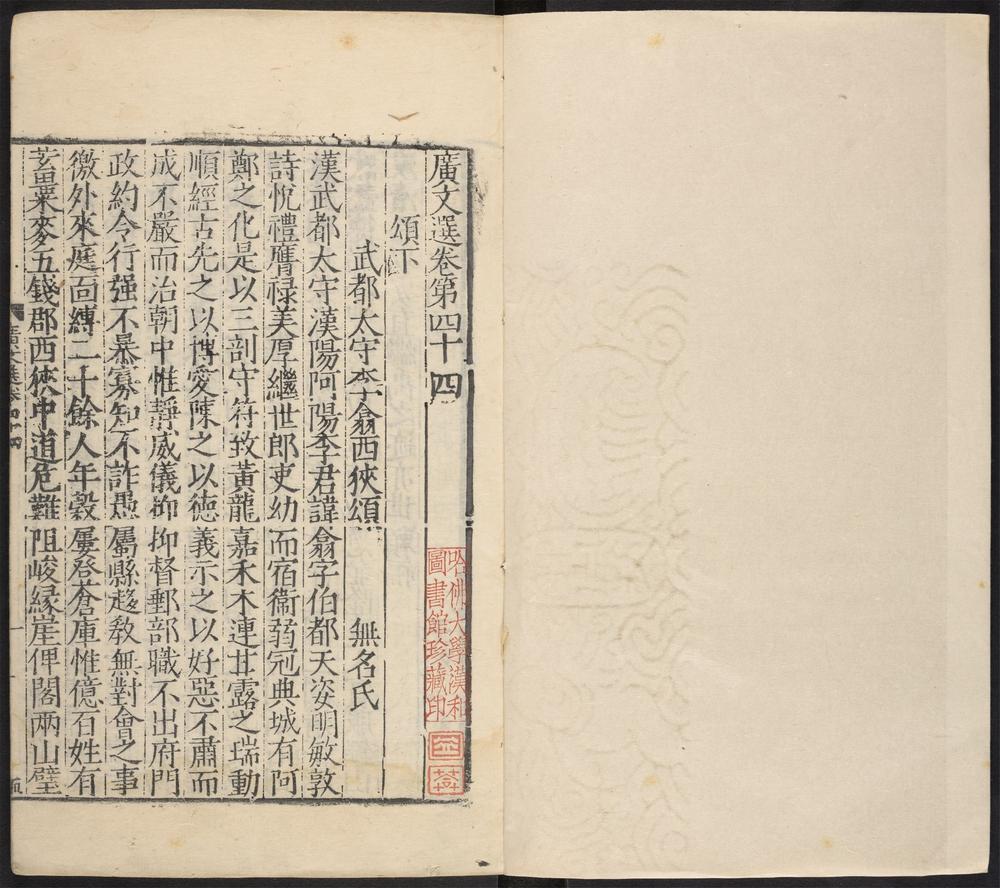 廣文選卷第四十四
頌下
武都太守李翕西狹頌 無名氏
漢武都太守漢陽阿陽李君諱翕字伯都天姿明敏敦
詩悅禮膺祿美厚繼世郎吏幼而宿衞弱冠典城有阿
鄭之化是以三剖守符致黃龍嘉禾木連甘露之瑞動
順經古先之以博愛陳之以德義示之以好惡不肅而
成不嚴而治朝中惟靜威儀抑抑督郵部職不出府門
政約令行强不暴寡知不詐愚屬縣趍敎無對會之事
徼外來庭靣縛二十餘人年穀屢登蒼庾惟億百姓有
蓄粟麥五錢郡西狹中道危難阻峻緣崖俾閣兩山壁
廣文選卷四十四
哈佛大學漢和
圖書館珍藏印